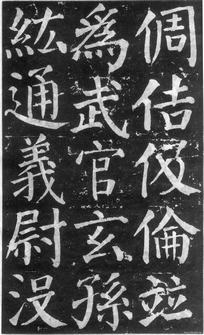 倜佶伋倫竝
爲武官玄孫
紘通義尉沒